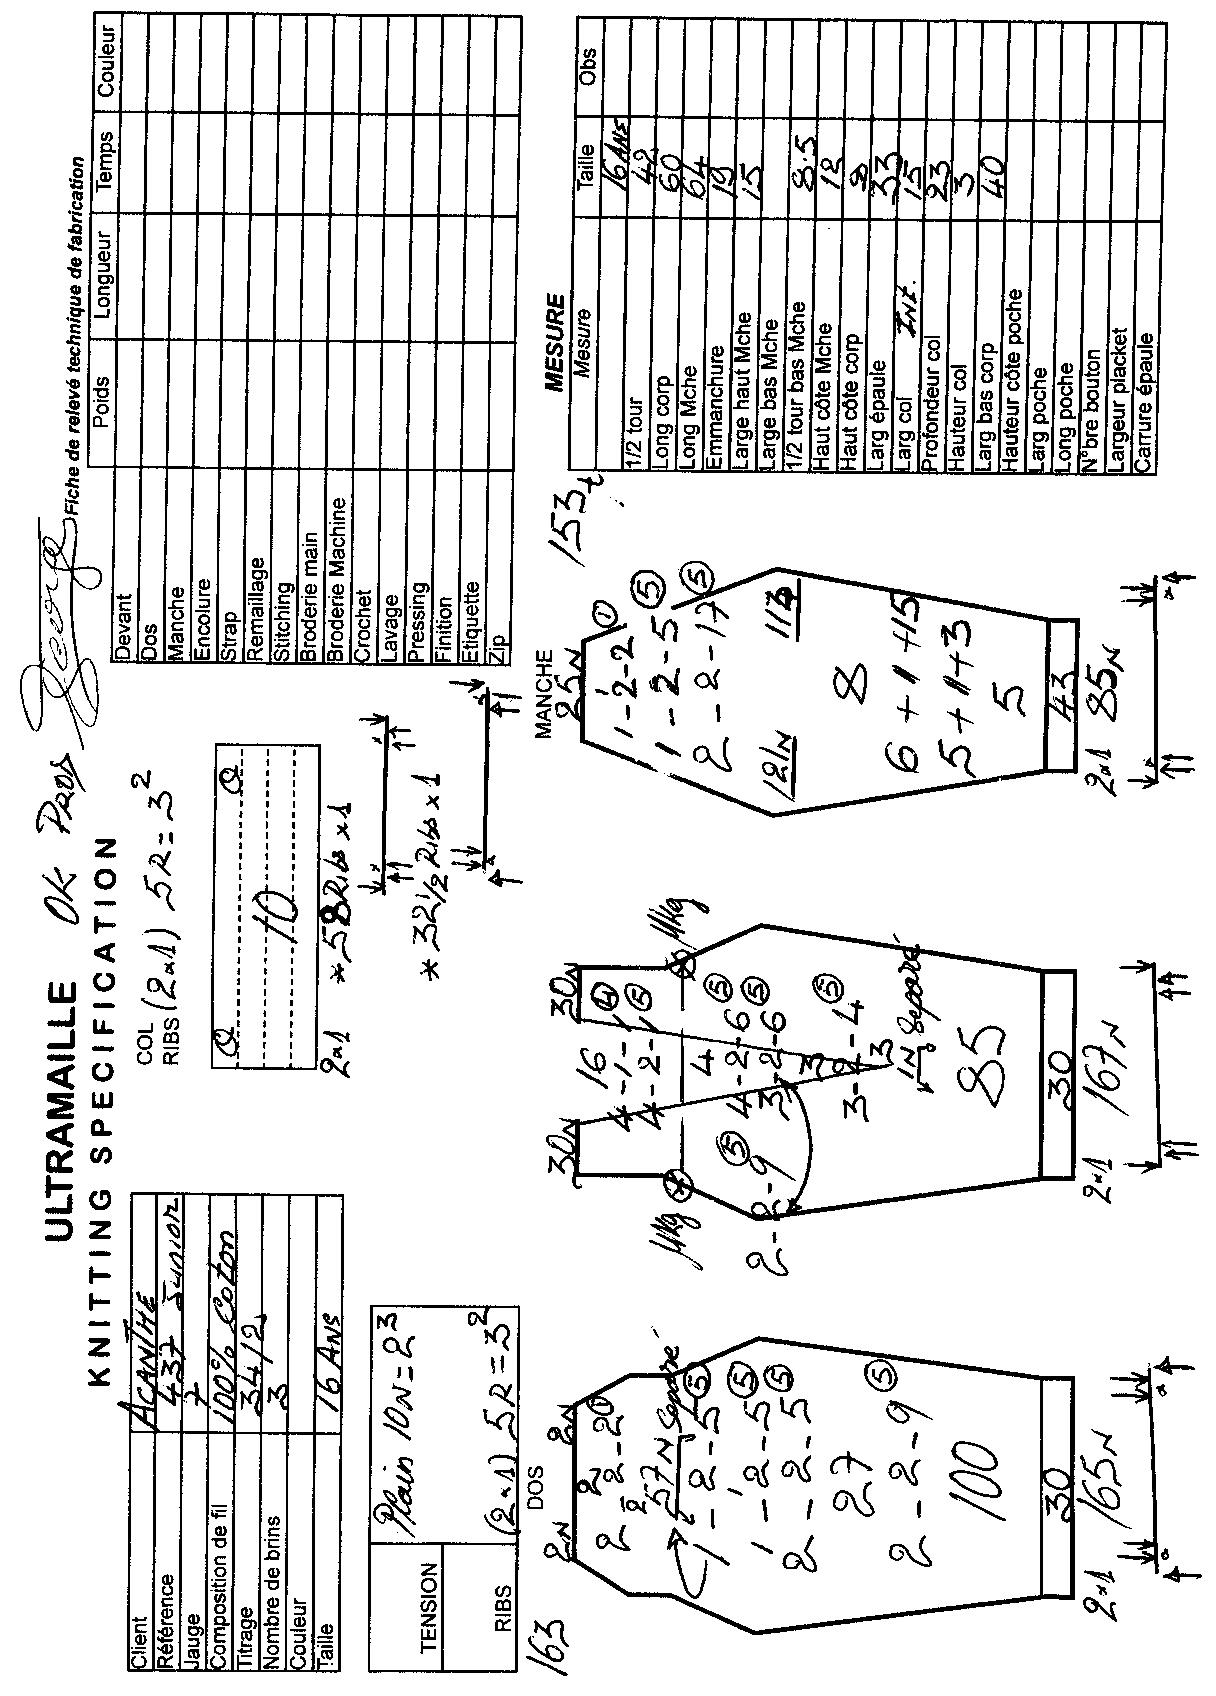 ULTRAMAILLE OK PROD George
Fiche de relevé technique de fabrication
KNITTING SPECIFICATION
Client ACANTHE
Référence 437 JUNIOR
Jauge 7
Composition de fil 100% Coton
Titrage 34/2
Nombre de brins 3
Couleur
Taille 16 ANS
COL
RIBS (2x1) 5R=3²
10
2x1 *58 Ribs x1
*32 1/2 Ribs x1
Poids Longueur Temps Couleur
Devant
Dos
Manche
Encolure
Strap
Remaillage
Stitching
Broderie main
Broderie Machine
Crochet
Lavage
Pressing
Finition
Etiquette
Zip
TENSION Plain 10N=2³
RIBS (2x1) 5R=3²
163 DOS
2N 2N
2
2-2-2 ①
2
57N Separé
1-2-5 ⑤
1
1-2-5 ⑤
2-2-5 ⑤
27
2-2-9 ⑤
100
30
2x1 165N
30N 30N
16
4-1-1 ④
4-2-1 ⑤
Mkg Mkg
4
4-2-6 ⑤
2-2-9 ⑤ 3-2-6 ⑤
3
3-2-4 ⑤
3
1N Separé
85
30
2x1 167N
MANCHE 153t
25N
1
1-2-2 ①
1-2-5 ⑤
2-2-17 ⑤
121N 113
8
6+1+15
5+1+3
5
43
2x1 85N
MESURE
Mesure Taille Obs
16 ANS
1/2 tour 42
Long corp 60
Long Mche 64
Emmanchure 19
Large haut Mche 15
Large bas Mche
1/2 tour bas Mche 8.5
Haut côte Mche 12
Haut côte corp 8
Larg épaule 33
Larg col INT. 15
Profondeur col 23
Hauteur col 3
Larg bas corp 40
Hauteur côte poche
Larg poche
Long poche
N°bre bouton
Largeur placket
Carrure épaule